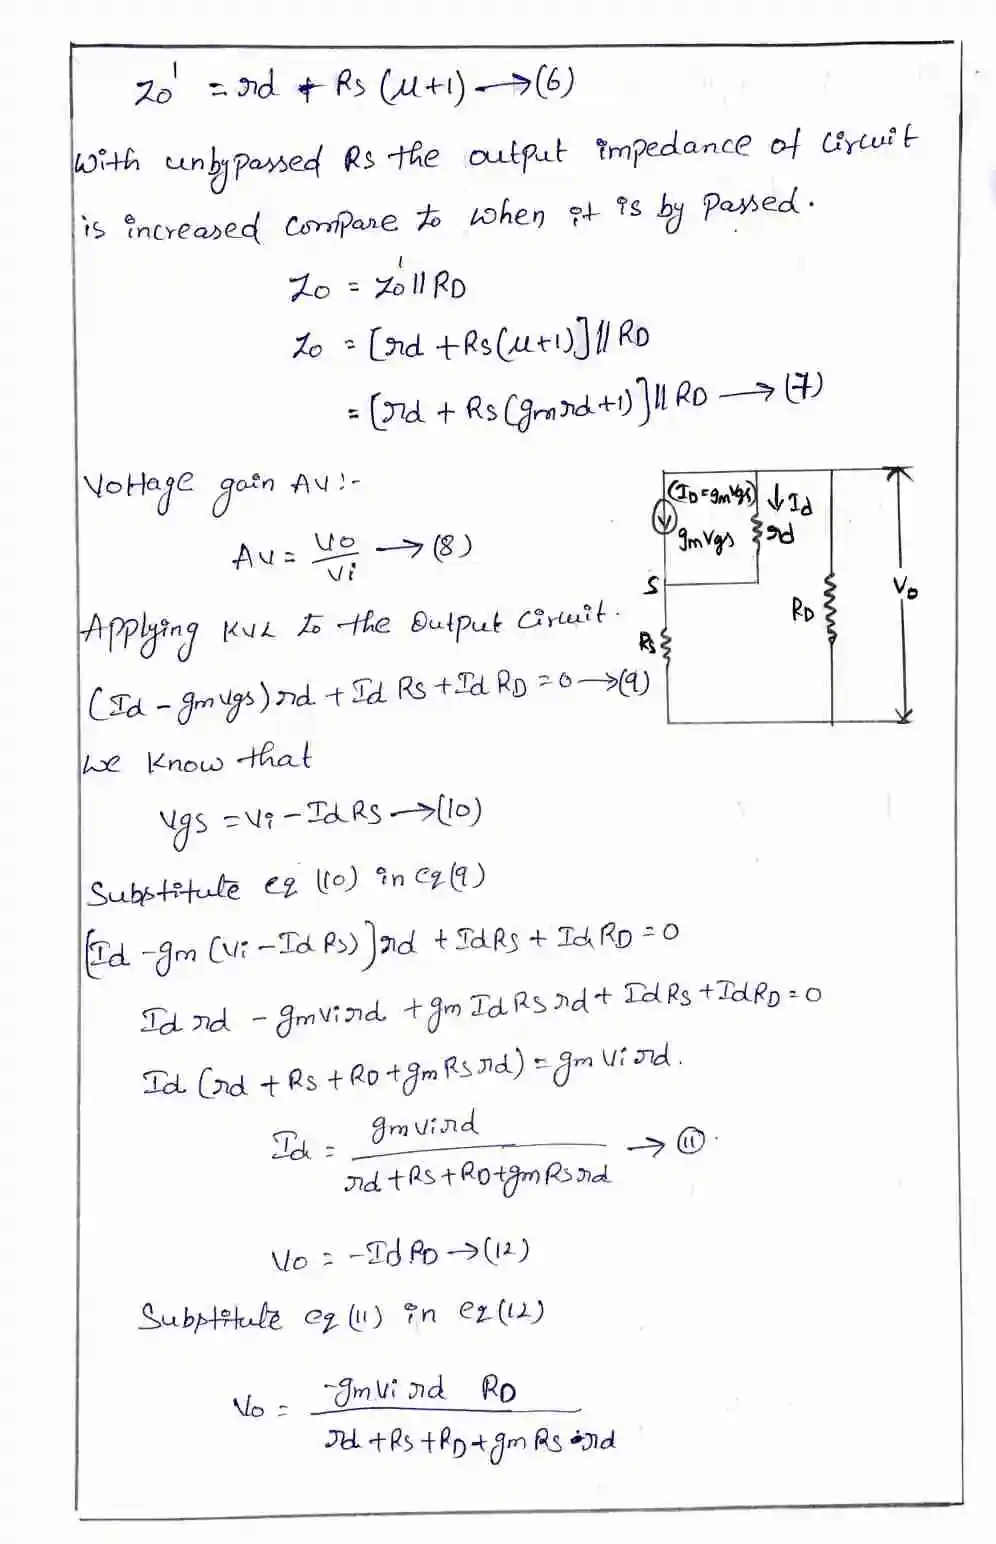 Zo' = rd + Rs (μ+1) → (6)
With unbypassed Rs the output impedance of circuit
is increased compare to when it is by passed.
Zo = Zo' || RD
Zo = [rd + Rs(μ+1)] || RD
= [rd + Rs (gmrd+1)] || RD → (7)
Voltage gain AV :-
AV = Vo/Vi → (8)
(ID = gmVgs) ↓ Id
gmVgs rd
S
Rs
RD
Vo
Applying KVL to the output circuit.
(Id - gmVgs) rd + Id Rs + Id RD = 0 → (9)
We know that
Vgs = Vi - Id Rs → (10)
Substitute eq (10) in eq (9)
[Id - gm (Vi - Id Rs)] rd + Id Rs + Id RD = 0
Id rd - gmVird + gm Id Rs rd + Id Rs + Id RD = 0
Id (rd + Rs + RD + gm Rs rd) = gm Vi rd.
Id = gmVird / rd + Rs + RD + gm Rs rd → (11)
Vo = - Id RD → (12)
Substitute eq (11) in eq (12)
Vo = -gmVi rd RD / rd + Rs + RD + gm Rs rd